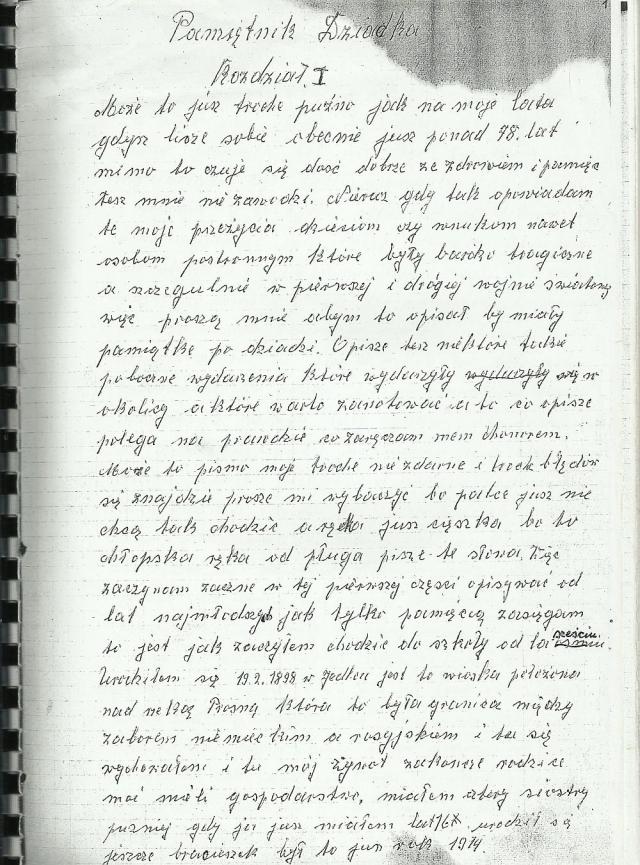 1
Pamiętnik Dziadka
Rozdział I
Może to już troche puźno jak na moje lata
gdysz lisze sobie obecnie jusz ponad 78. lat
mimo to czuje się dość dobrze ze zdrowiem i pamięć
tesz mnie nie zawodzi. Nieraz gdy tak opowiadam
te moje przeżycia dzieciom czy wnukom nawet
osobom postronnym które były bardzo tragiczne
a szczegulnie w pierwszej i drógiej wojnie światowej
więc proszą mnie abym to opisał by miały
pamiątkę po dziadzi. Opisze tesz niektóre ludzie
poboczne wydarzenia które wydarzyły się w
okolicy a które warto zanotować a to co opisze
polega na prawdzie co zaręczam mem chonorem.
Może to pismo moje troche nie zdarne i trochę błędów
się znajdzie prosze mi wybaczyć bo palce jusz nie
chcą tak chodzić a ręka jusz cięszka bo to
chłopska ręka od pługa pisze te słowa. Więc
zaczynam zaczne w tej pierwszej części opisywać od
lat najmłodszych jak tylko pamięcią zasięgam
to jest jak zaczyłem chodzić do szkoły od lat sześciu.
Urodziłem się 19.2.1898 w Jedlca jest to wioska położona
nad rzeką Prosną która to była granica między
zaborem niemieckim a rosyjskiem i tu się
wychowałem i tu mój żywot zakończe rodzice
moi mieli gospodarstwo, miałem cztery siostry
puzniej gdy ja jusz miałem lat 16 urodził się
jeszcze braciszek był to jusz rok 1914.